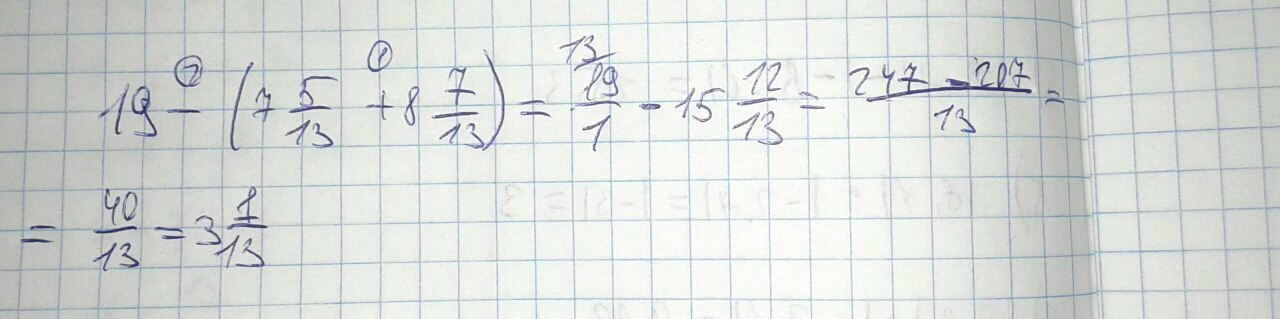 19 - ② (7 5/13 + ① 8 7/13) = 13/ 19/1 - 15 12/13 = 247 - 207/13 =
= 40/13 = 3 1/13